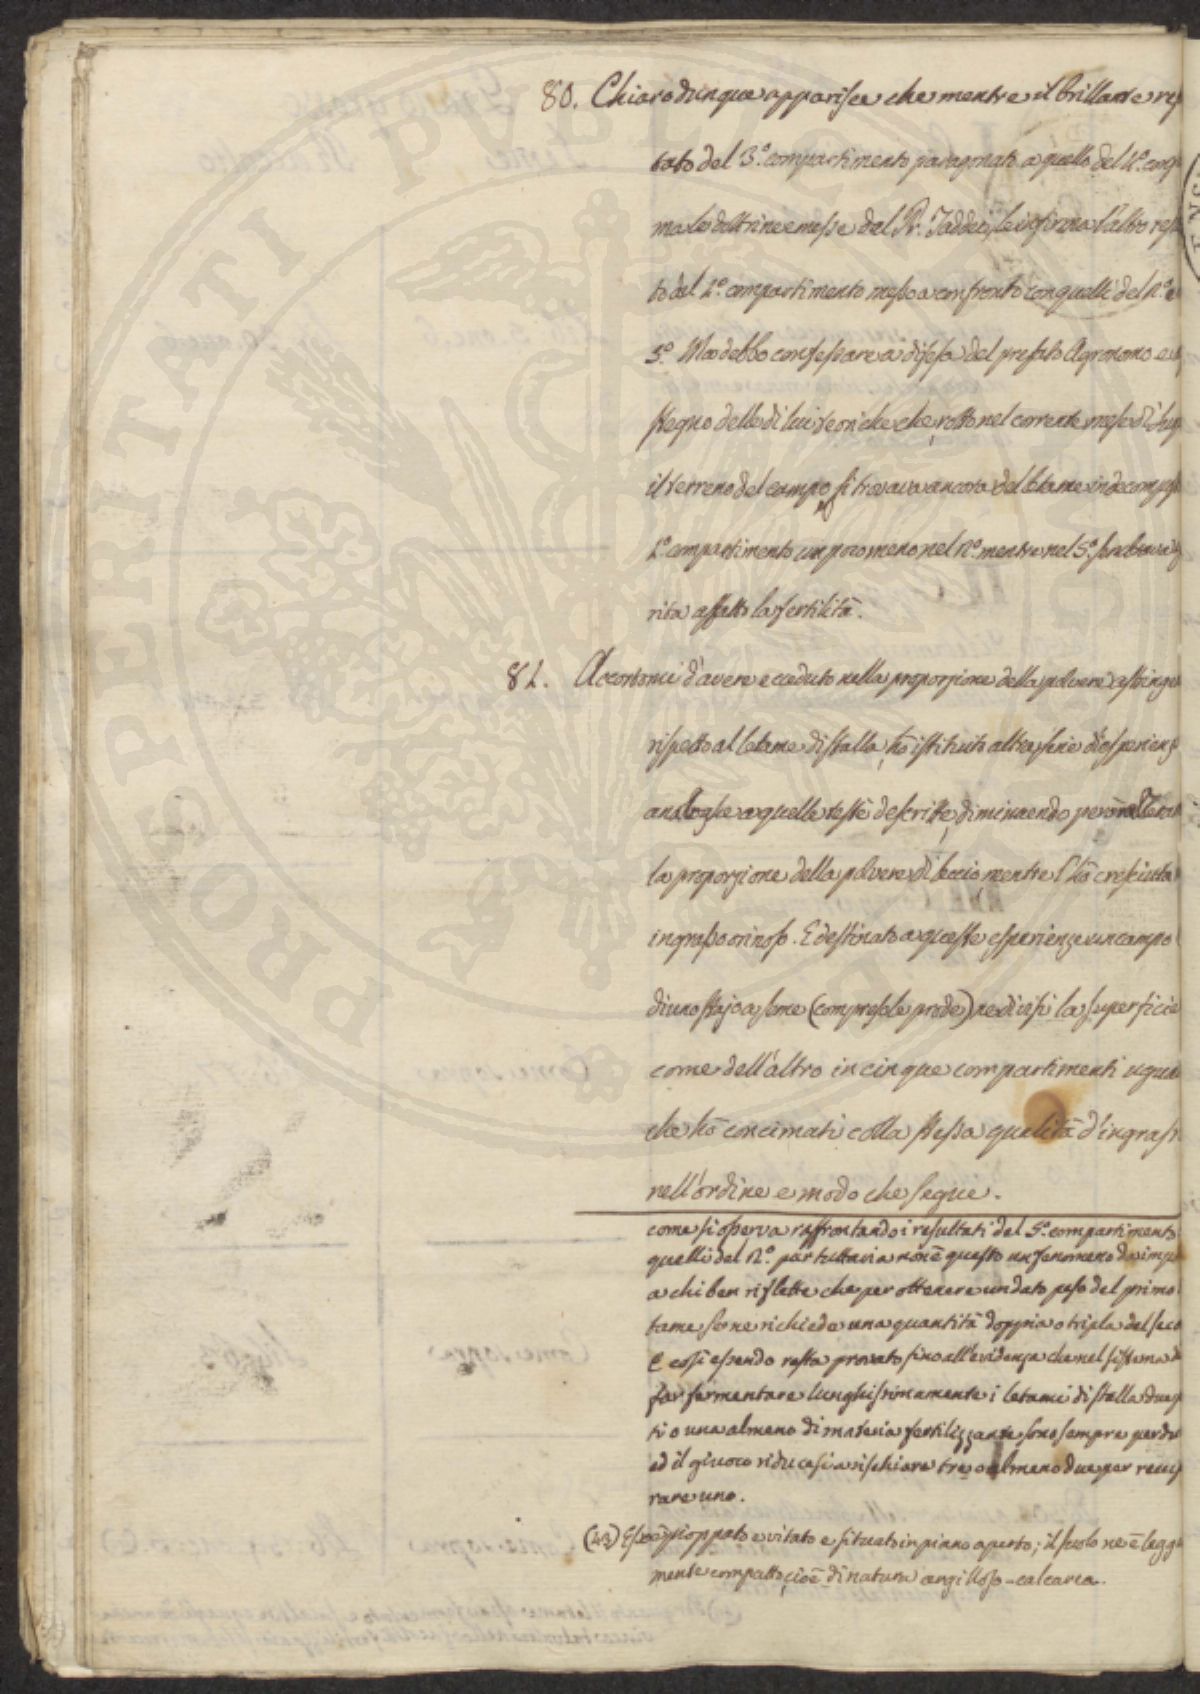 80. Chiaro dunque apparisce che mentre il brillante re
tato del 3.º compartimento paragonato a quello del 4.º
ma le dottrine emesse dal Pr. Taddei, le inferma l'altro
to del 2.º compartimento messo a confronto con quelli del 1.º e
5.º Ma debbo confessare a difesa del prefato Agronomo e
stegno delle di lui teoriche che, rotto nel corrente mese di
il terreno del campo si trovava ancora del letame indecomp
2.º compartimento un poco meno nel 1.º mentre nel 5.º
rita affatto la fertilità.
81. Accortomi d'avere ecceduto nella proporzione della polvere astringe
rispetto al letame di stalla, hò istituito altra serie di esperienz
analoghe a quelle testè descritte, diminuendo però
la proporzione della polvere di leccio mentre l'hò cresciuta
ingrasso orinoso. E destinato a queste esperienze un campo
di uno stajo a seme (comprese le prode) ne divisi la superficie
come dell'altro in cinque compartimenti ugua
che hò concimati colla stessa qualità d'ingrass
nell'ordine e modo che segue.
come si osserva raffrontando i resultati del 5.º compartimento
quelli del 1.º pur tuttavia non è questo un fenomeno da imp
a chi ben riflette che per ottenere un dato peso del primo
tame se ne richiede una quantità doppia o tripla del seco
E così essendo resta provato fino all'evidenza che nel sistema d
far fermentare lunghissimamente i letami di stalla due p
ti o una almeno di materia fertilizzante sono sempre perdu
ed il giuoco riducesi a rischiare tre o almeno due per recup
rare uno.
(42) Esso è pioppato e vitato e situato in piano aperto; il suolo ne è legg
mente compatto, cioè di natura argilloso-calcarea.